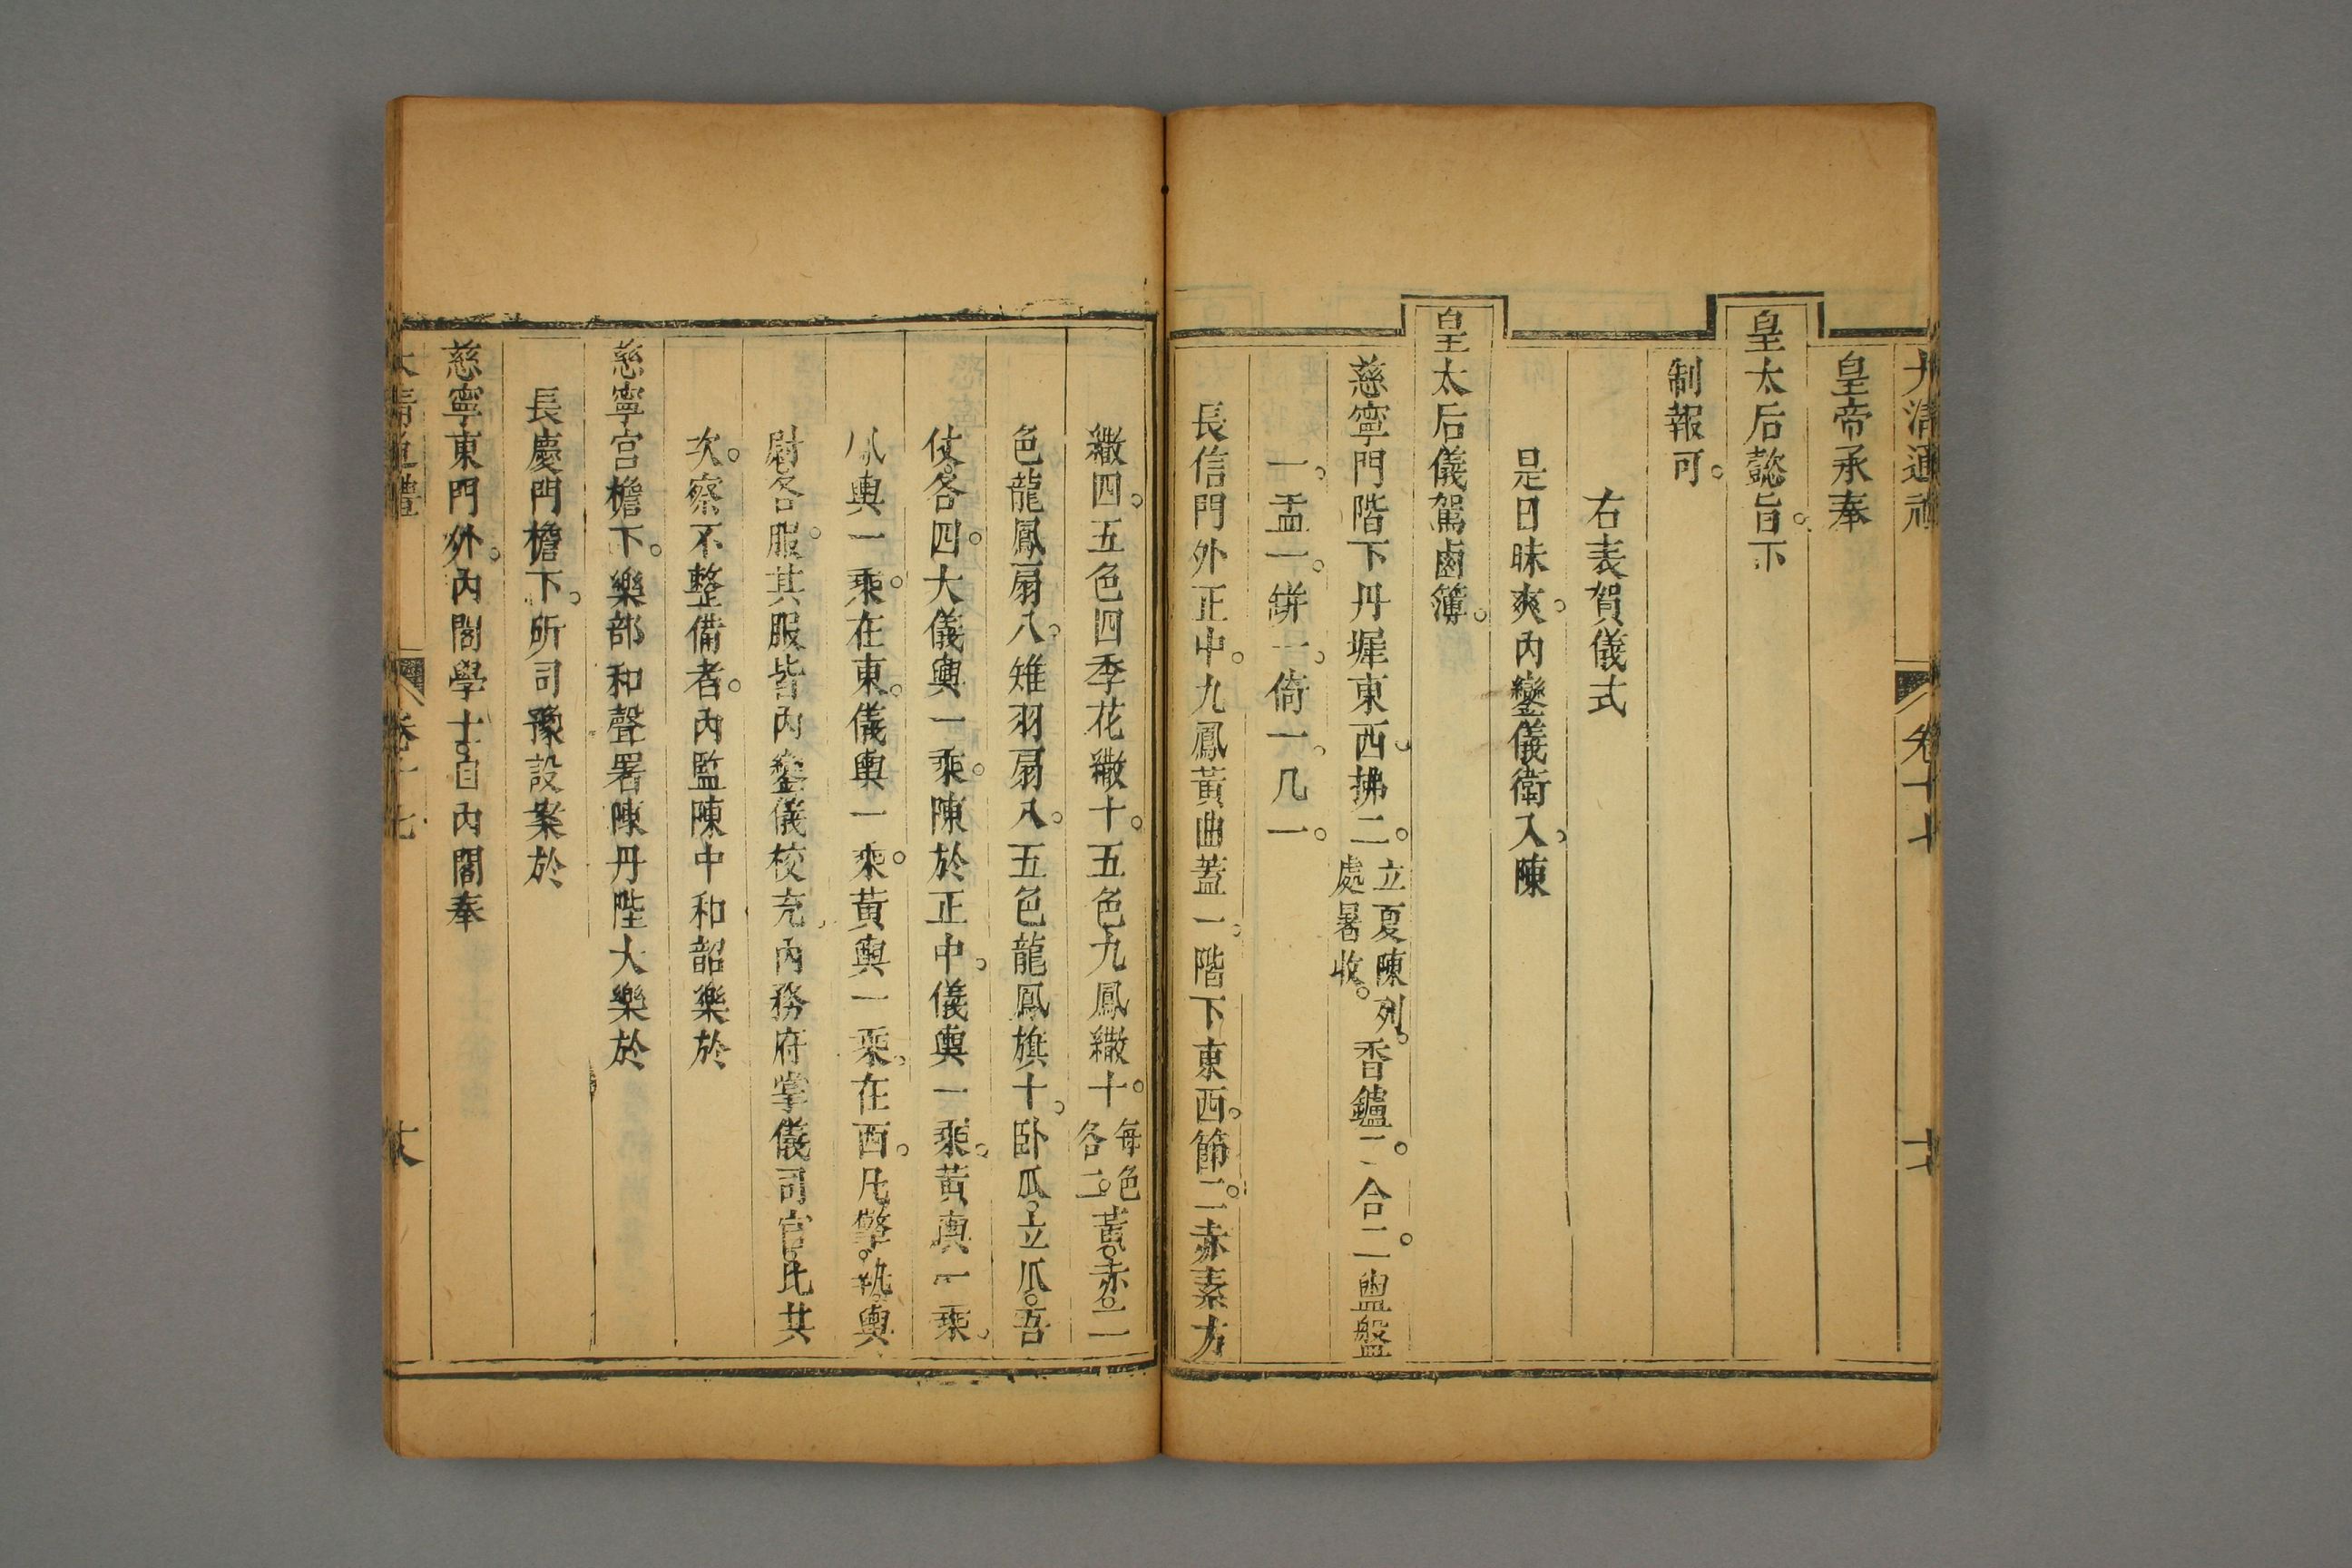 大清通禮 卷十七
皇帝承奉
皇太后懿旨。下
制報可。
右表賀儀式
是日昧爽。內鑾儀衛入陳
皇太后儀駕鹵簿。
慈寧門階下丹墀東西。拂二。立夏陳列。處暑收。香鑪二。合二。盥盤
一。盂一。缾一。倚一。几一。
長信門外正中。九鳳黃曲蓋一。階下東西。節二。赤素方
繖四。五色四季花繖十。五色九鳳繖十。每色各二。黃。赤。二
色龍鳳扇八。雉羽扇八。五色龍鳳旗十。卧瓜。立瓜。吾
仗。各四。大儀輿一乘。陳於正中。儀輿一乘。黃輿一乘。
八輿一乘。在東。儀輿一乘。黃輿一乘。在西。凡擎。執。輿
尉。各服。其服皆內鑾儀校充。內務府掌儀司官。比其
次。察不整備者。內監陳中和韶樂於
慈寧宮檐下。樂部和聲署陳丹陛大樂於
長慶門檐下。所司豫設案於
慈寧東門外。內閣學士。自內閣奉
大清通禮 卷十七